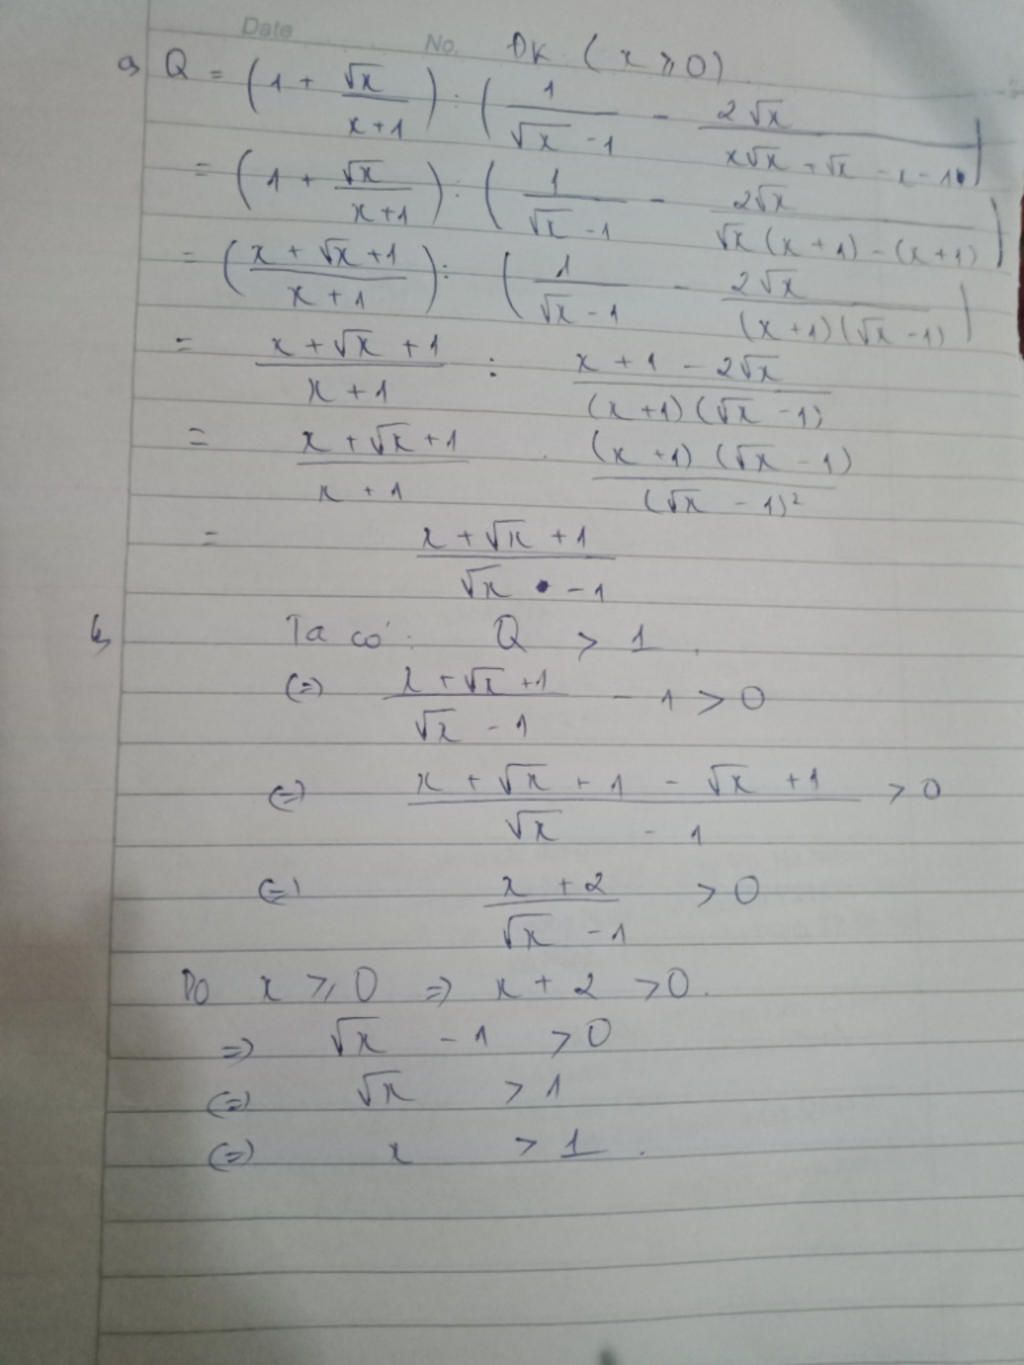 Date No. ĐK (x ≥ 0)
a, Q = (1 + √x / x+1) : (1 / √x - 1 - 2√x / x√x + √x - x - 1)
= (1 + √x / x+1) : (1 / √x - 1 - 2√x / √x (x + 1) - (x + 1))
= (x + √x + 1 / x + 1) : (1 / √x - 1 - 2√x / (x + 1)(√x - 1))
= x + √x + 1 / x + 1 : x + 1 - 2√x / (x+1)(√x - 1)
= x + √x + 1 / x + 1 . (x + 1)(√x - 1) / (√x - 1)²
= x + √x + 1 / √x - 1
b, Ta có: Q > 1.
(=) x + √x + 1 / √x - 1 - 1 > 0
(=) x + √x + 1 - √x + 1 / √x - 1 > 0
(=) x + 2 / √x - 1 > 0
Do x ≥ 0 => x + 2 > 0.
=> √x - 1 > 0
(=) √x > 1
(=) x > 1.